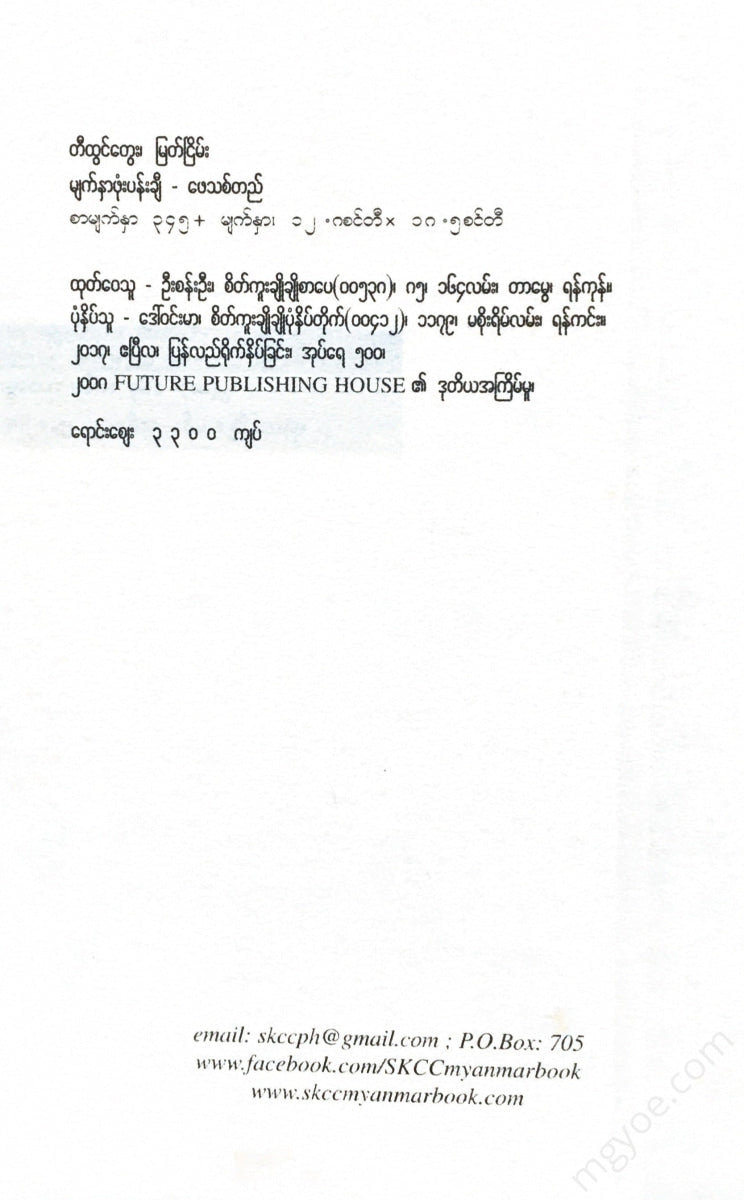 တီထွင်တွေး၊ မြတ်ငြိမ်း
မျက်နှာဖုံးပန်းချီ - ဖေသစ်တည်
စာမျက်နှာ ၃၄၅+ မျက်နှာ၊ ၁၂.၈စင်တီ× ၁၈.၅စင်တီ
ထုတ်ဝေသူ - ဦးစန်းဦး၊ စိတ်ကူးချိုချိုစာပေ(၀၀၅၃၈)၊ ၈၅၊ ၁၆၄လမ်း၊ တာမွေ၊ ရန်ကုန်။
ပုံနှိပ်သူ - ဒေါ်ဝင်းမာ၊ စိတ်ကူးချိုချိုပုံနှိပ်တိုက်(၀၀၄၁၂)၊ ၁၁၇၉၊ မစိုးရိမ်လမ်း၊ ရန်ကင်း။
၂၀၁၇၊ ဧပြီလ၊ ပြန်လည်ရိုက်နှိပ်ခြင်း၊ အုပ်ရေ ၅၀၀၊
၂၀၀၈ FUTURE PUBLISHING HOUSE ၏ ဒုတိယအကြိမ်မူ၊
ရောင်းဈေး ၃ ၃ ၀ ၀ ကျပ်
email: skccph@gmail.com ; P.O.Box: 705
www.facebook.com/SKCCmyanmarbook
www.skccmyanmarbook.com
mgyoe.com